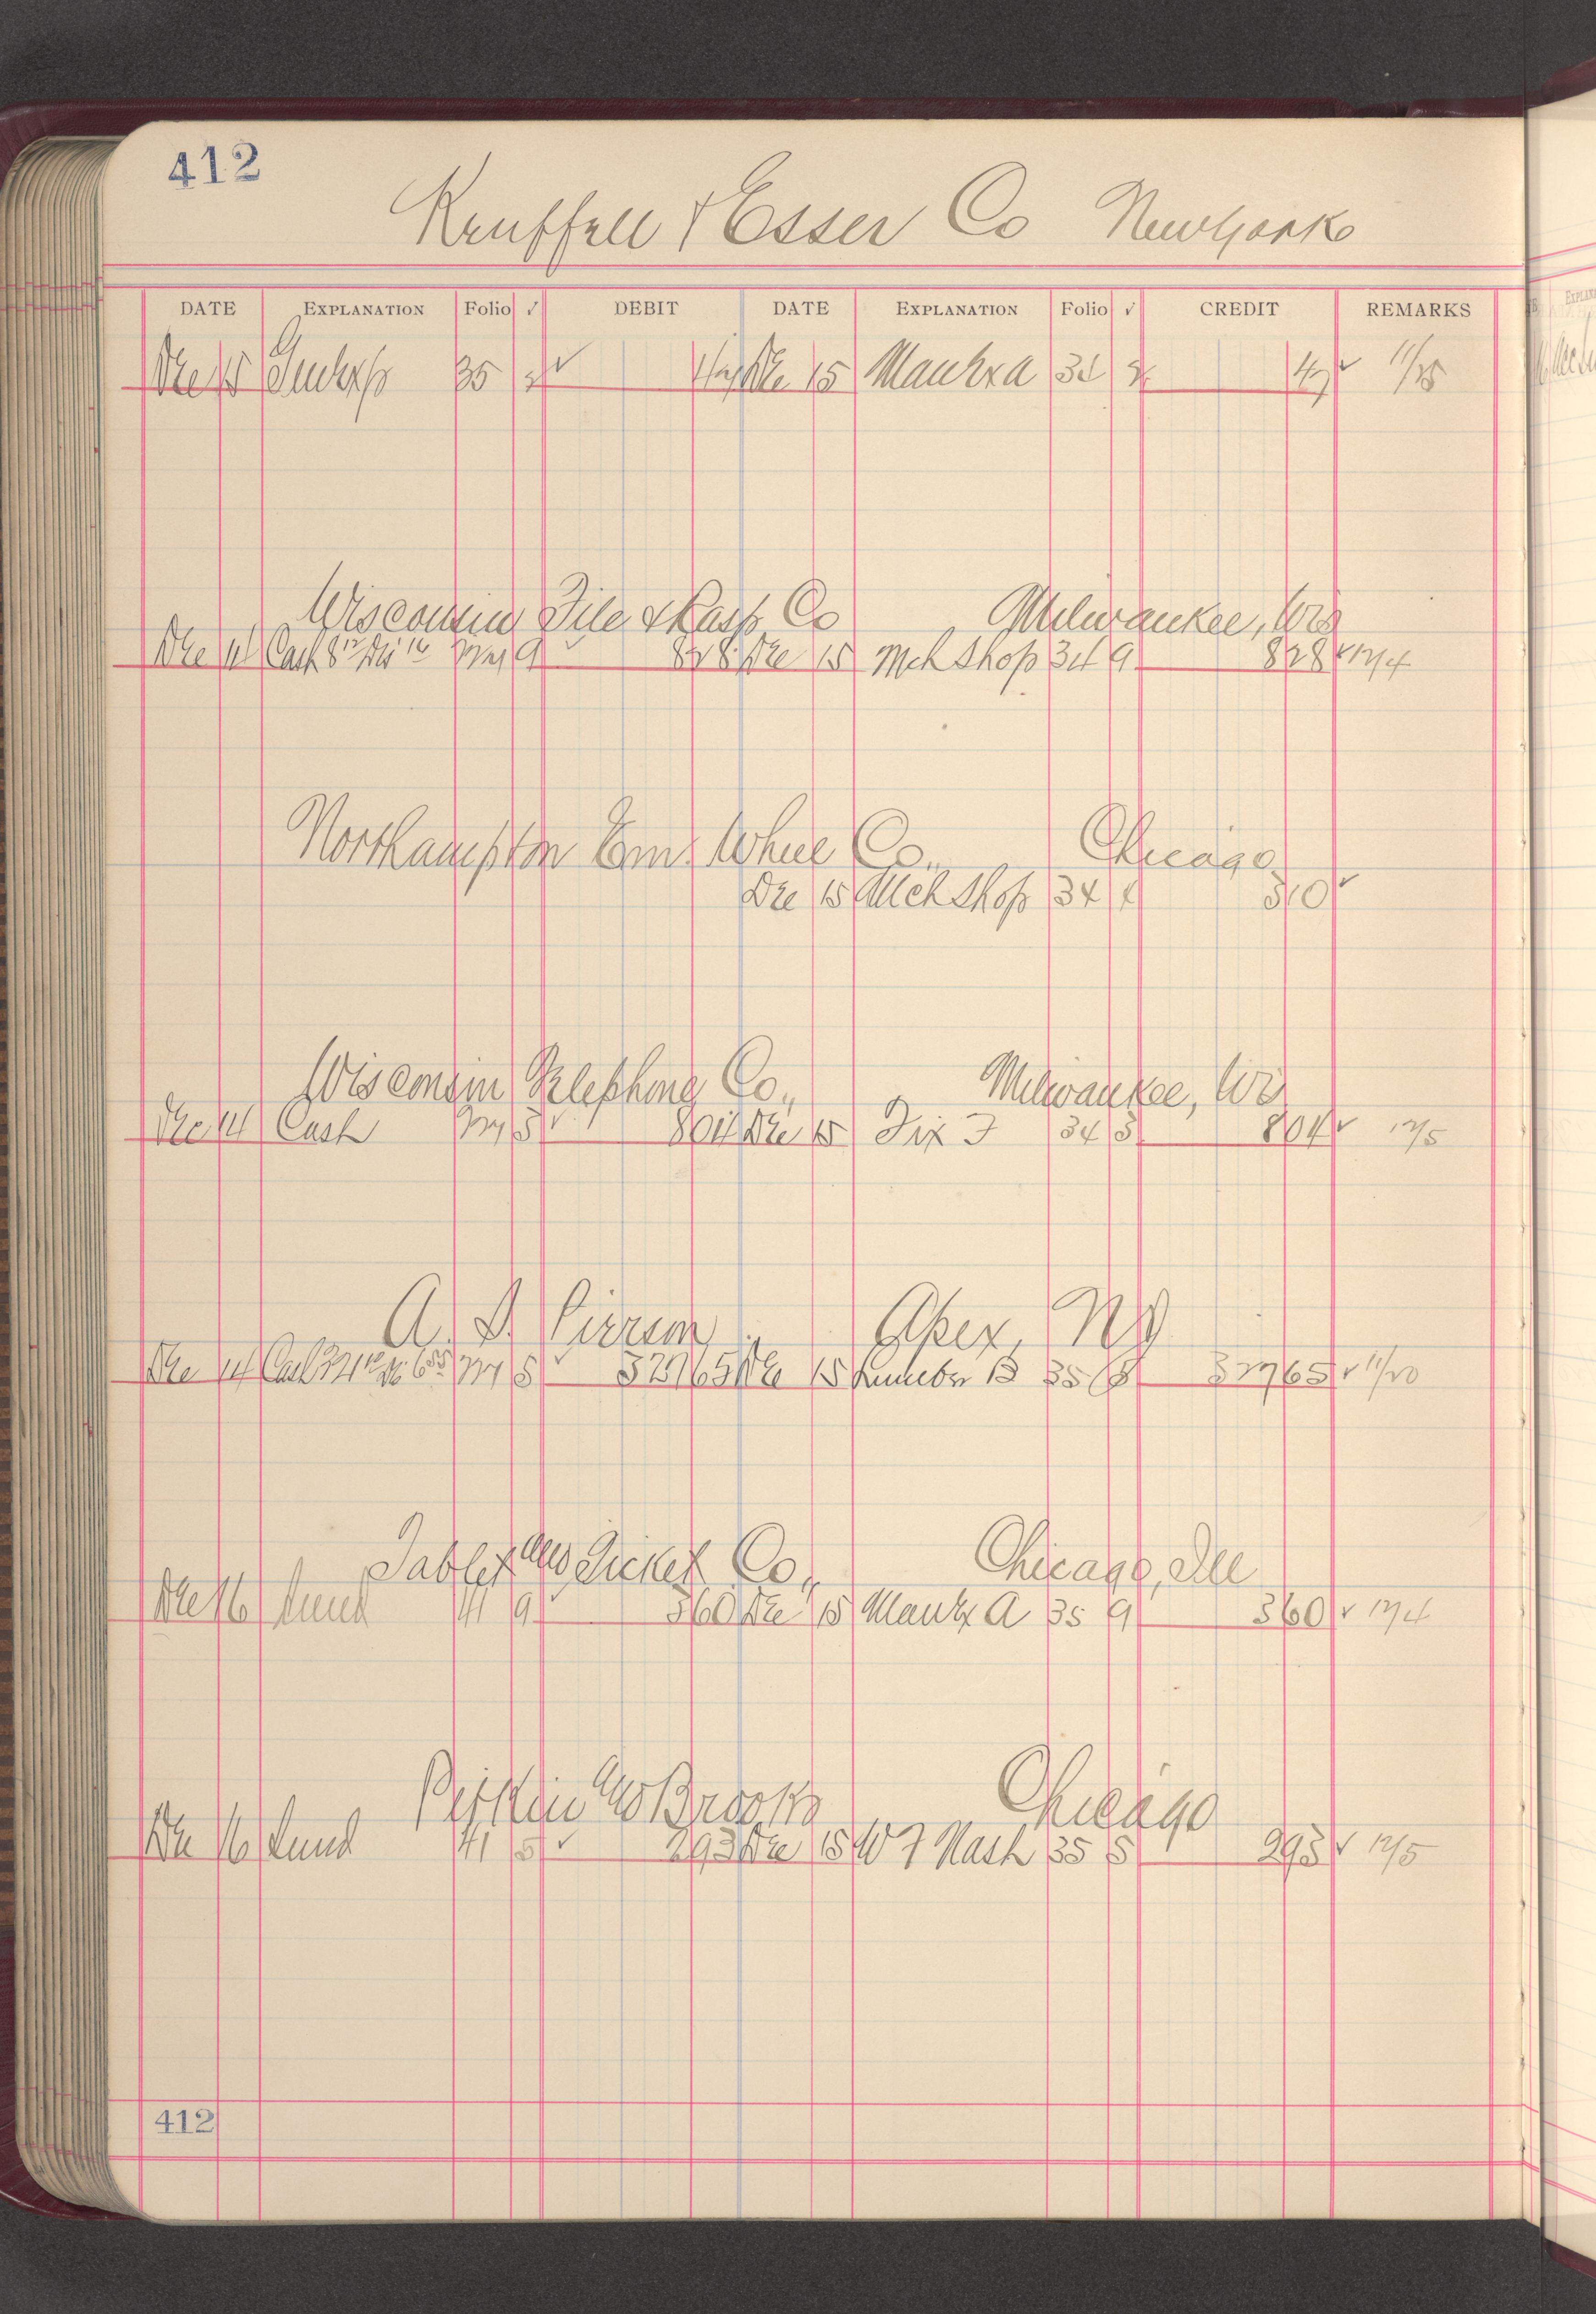 412
Keuffell & Esser Co New York
DATE EXPLANATION Folio √ DEBIT DATE EXPLANATION Folio √ CREDIT REMARKS
Dec 15 35 Dec 15 34 11/25
Wisconsin File & Co Milwaukee, Wis
Dec Cash 9 828 Dec 15 Mch Shop 34 9 828 12/4
Northampton Em. Wheel Co., Chicago
Dec 15 Mch Shop 34 510
Wisconsin Telephone Co., Milwaukee, Wis
Dec 14 Cash 5 804 Dec 15 Fix F 34 5 804 12/5
A. D. Pierson Apex, NY
Dec 14 Cash 8 32765 Dec 15 Lumber B 35 8 32765 11/20
Tablet & Ticket Co., Chicago, Ill
Dec 16 Sund 41 9 360 Dec 15 Manfg A 35 9 360 12/4
Pitkin & Brooks Chicago
Dec 16 Sund 41 5 295 Dec 15 W F Nash 35 5 295 12/5
412